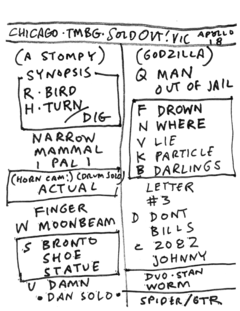 CHICAGO · TMBG · SOLD OUT! VIC APOLLO 18
(A STOMPY)
SYNOPSIS
R · BIRD
H · TURN / DIG
NARROW
MAMMAL
1 PAL 1
(HORN CAM:) (DRUM SOLO)
ACTUAL
FINGER
W MOONBEAM
S BRONTO
SHOE
STATUE
U DAMN
• DAN SOLO •
(GODZILLA)
Q MAN
OUT OF JAIL
F DROWN
N WHERE
V LIE
K PARTICLE
B DARLINGS
LETTER
#3
D DONT
BILLS
C 2082
JOHNNY
DUO · STAN
WORM
SPIDER/GTR